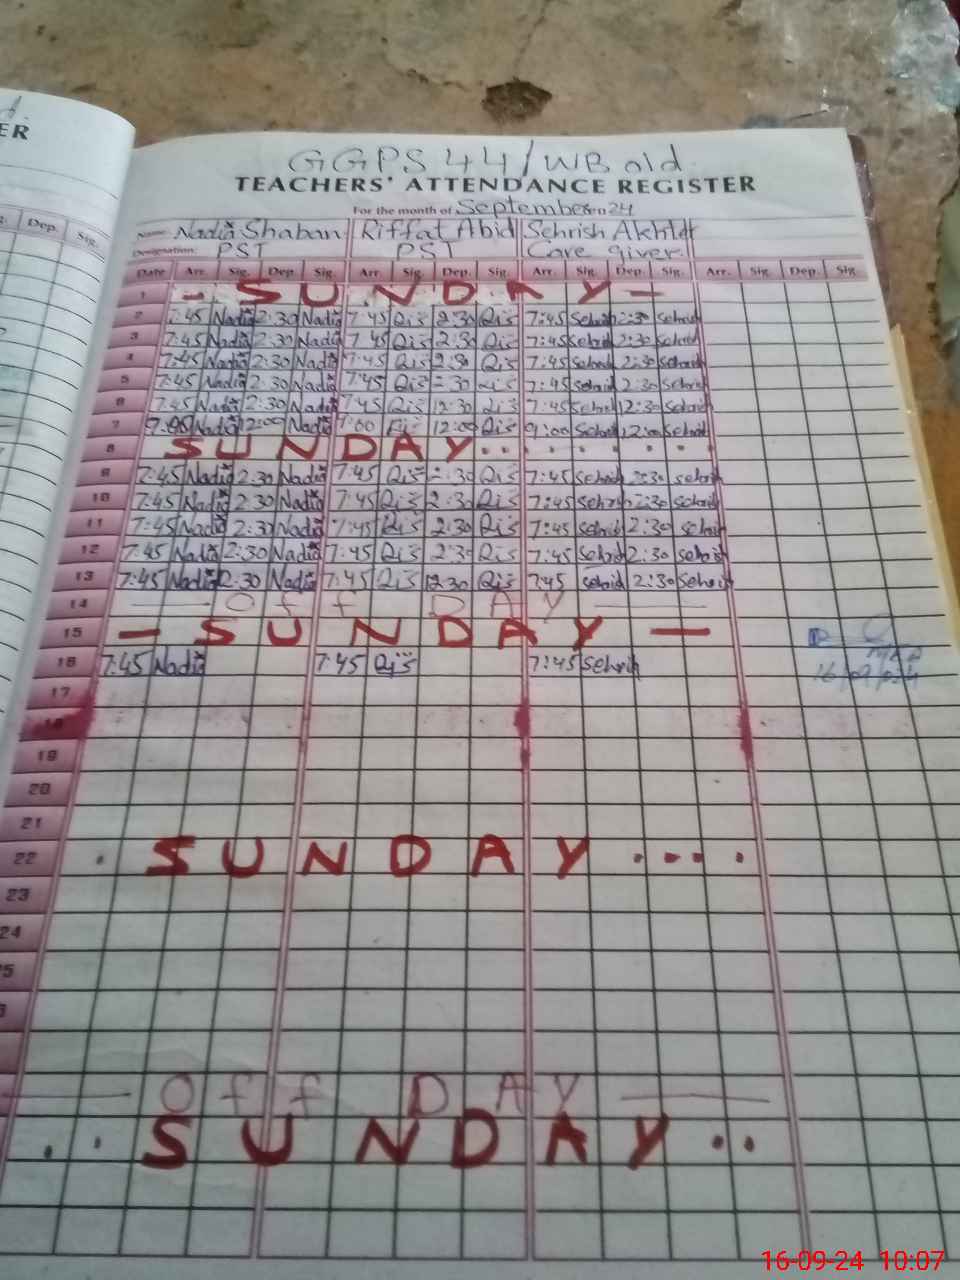 ER
GGPS 44/WB old.
TEACHERS' ATTENDANCE REGISTER
For the month of September 24
Name Nadia Shaban Riffat Abid Sehrish Akhter
Designation PST PST Care giver
Dep. Sig. Date Arr. Sig. Dep. Sig. Arr. Sig. Dep. Sig. Arr. Sig. Dep. Sig. Arr. Sig. Dep. Sig.
1 - SUNDAY -
2 7:45 Nadia 2:30 Nadia 7:45 2:30 7:45 Sehrish 2:30 Sehrish
3 7:45 Nadia 2:30 Nadia 7:45 2:30 7:45 Sehrish 2:30 Sehrish
4 7:45 Nadia 2:30 Nadia 7:45 2:30 7:45 Sehrish 2:30 Sehrish
5 7:45 Nadia 2:30 Nadia 7:45 2:30 7:45 Sehrish 2:30 Sehrish
6 7:45 Nadia 2:30 Nadia 7:45 2:30 7:45 Sehrish 2:30 Sehrish
7 Nadia 12:00 Nadia 7:00 12:00 12:00 Sehrish
8 SUNDAY........
9 7:45 Nadia 2:30 Nadia 7:45 2:30 7:45 Sehrish 2:30 Sehrish
10 7:45 Nadia 2:30 Nadia 7:45 2:30 7:45 Sehrish 2:30 Sehrish
11 7:45 Nadia 2:30 Nadia 7:45 2:30 7:45 Sehrish 2:30 Sehrish
12 7:45 Nadia 2:30 Nadia 7:45 2:30 7:45 Sehrish 2:30 Sehrish
13 7:45 Nadia 2:30 Nadia 7:45 2:30 7:45 Sehrish 2:30 Sehrish
14 — Off DAY —
15 — SUNDAY —
16 7:45 Nadia 7:45 7:45 Sehrish 16/09/024
17
18
19
20
21
22 . SUNDAY ....
23
24
Off DAY
.. SUNDAY ..
16-09-24 10:07